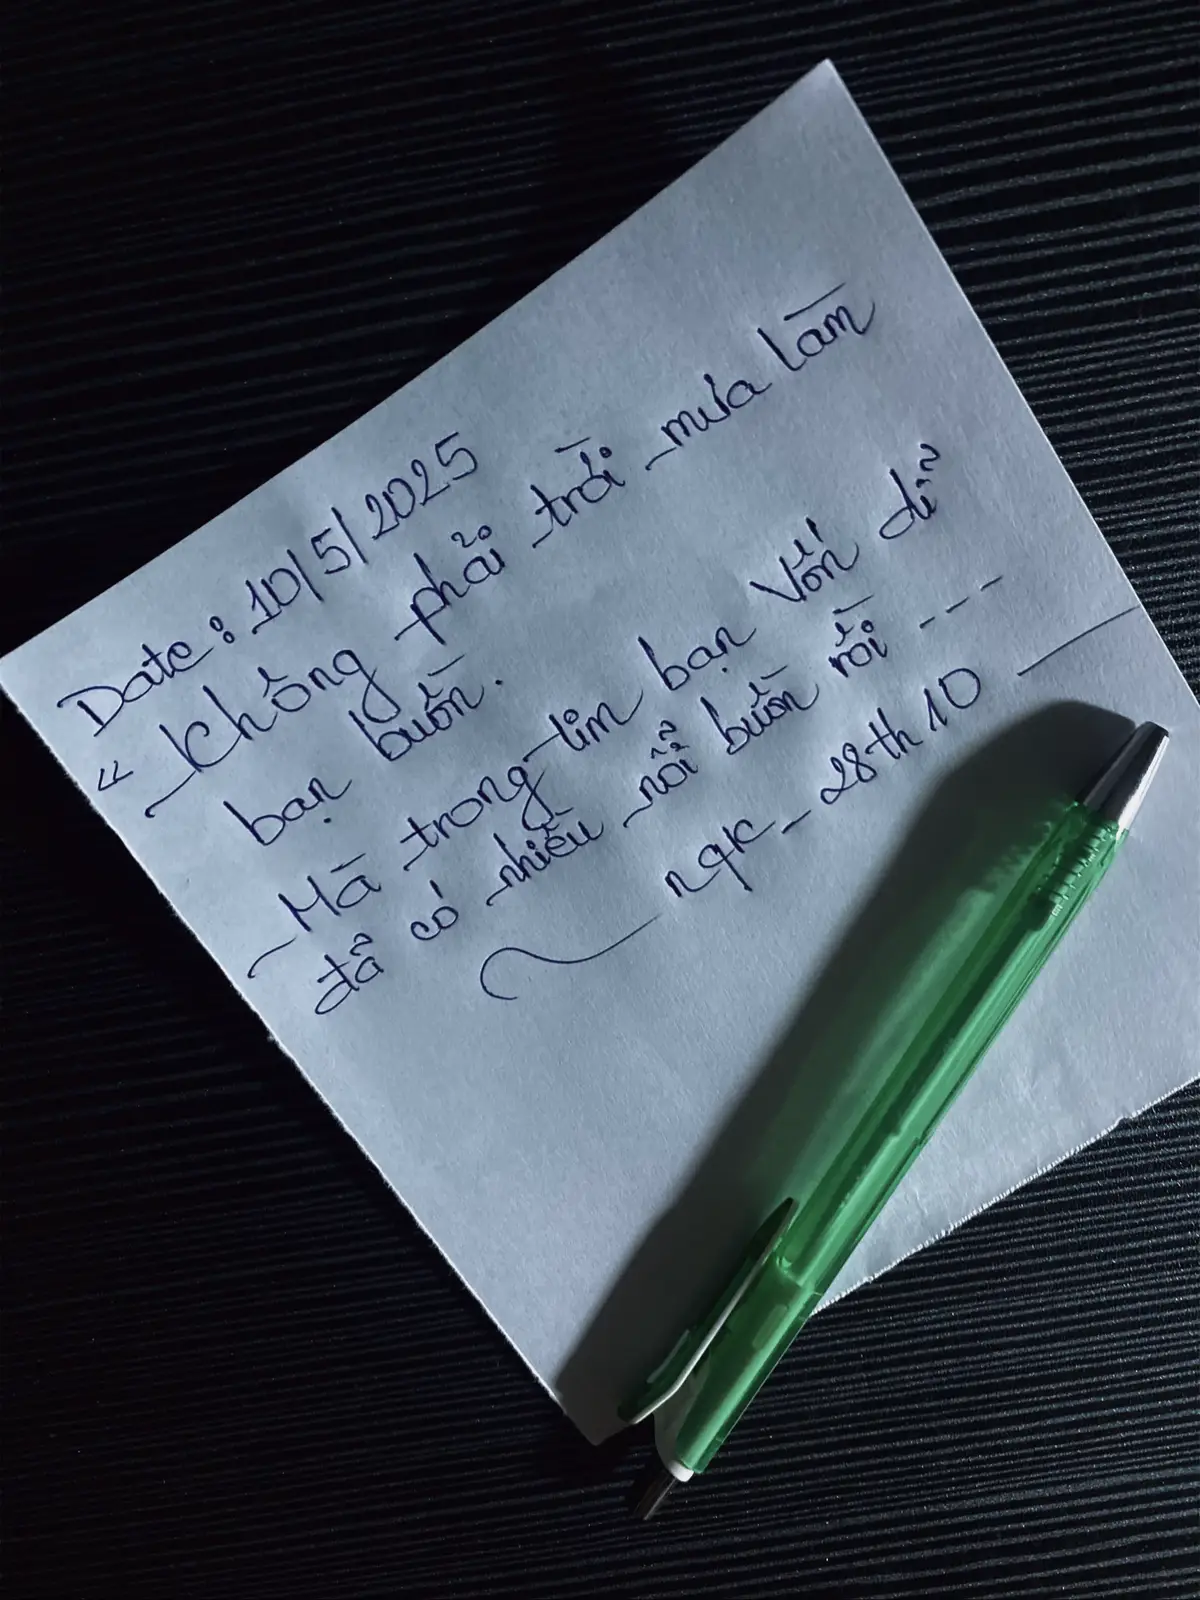 Date: 10/5/2025
“ Không phải trời mưa làm
bạn buồn.
Mà trong tim bạn vốn dĩ
đã có nhiều nỗi buồn rồi ----
ngk _ 28th 10